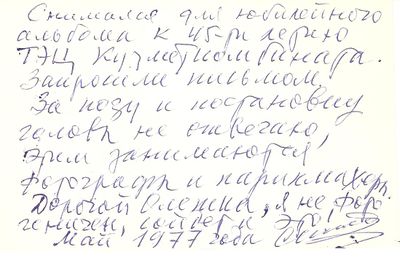 Снимался для юбилейного
альбома к 45-ти летию
ТЭЦ Кузметкомбината.
Запросили письмом,
За позу и постановку
головы не отвечаю,
этим занимаются
фотографы и парикмахеры.
Дорогой Олежка, я не фото
геничен, сойдет и это!
Май 1977 года